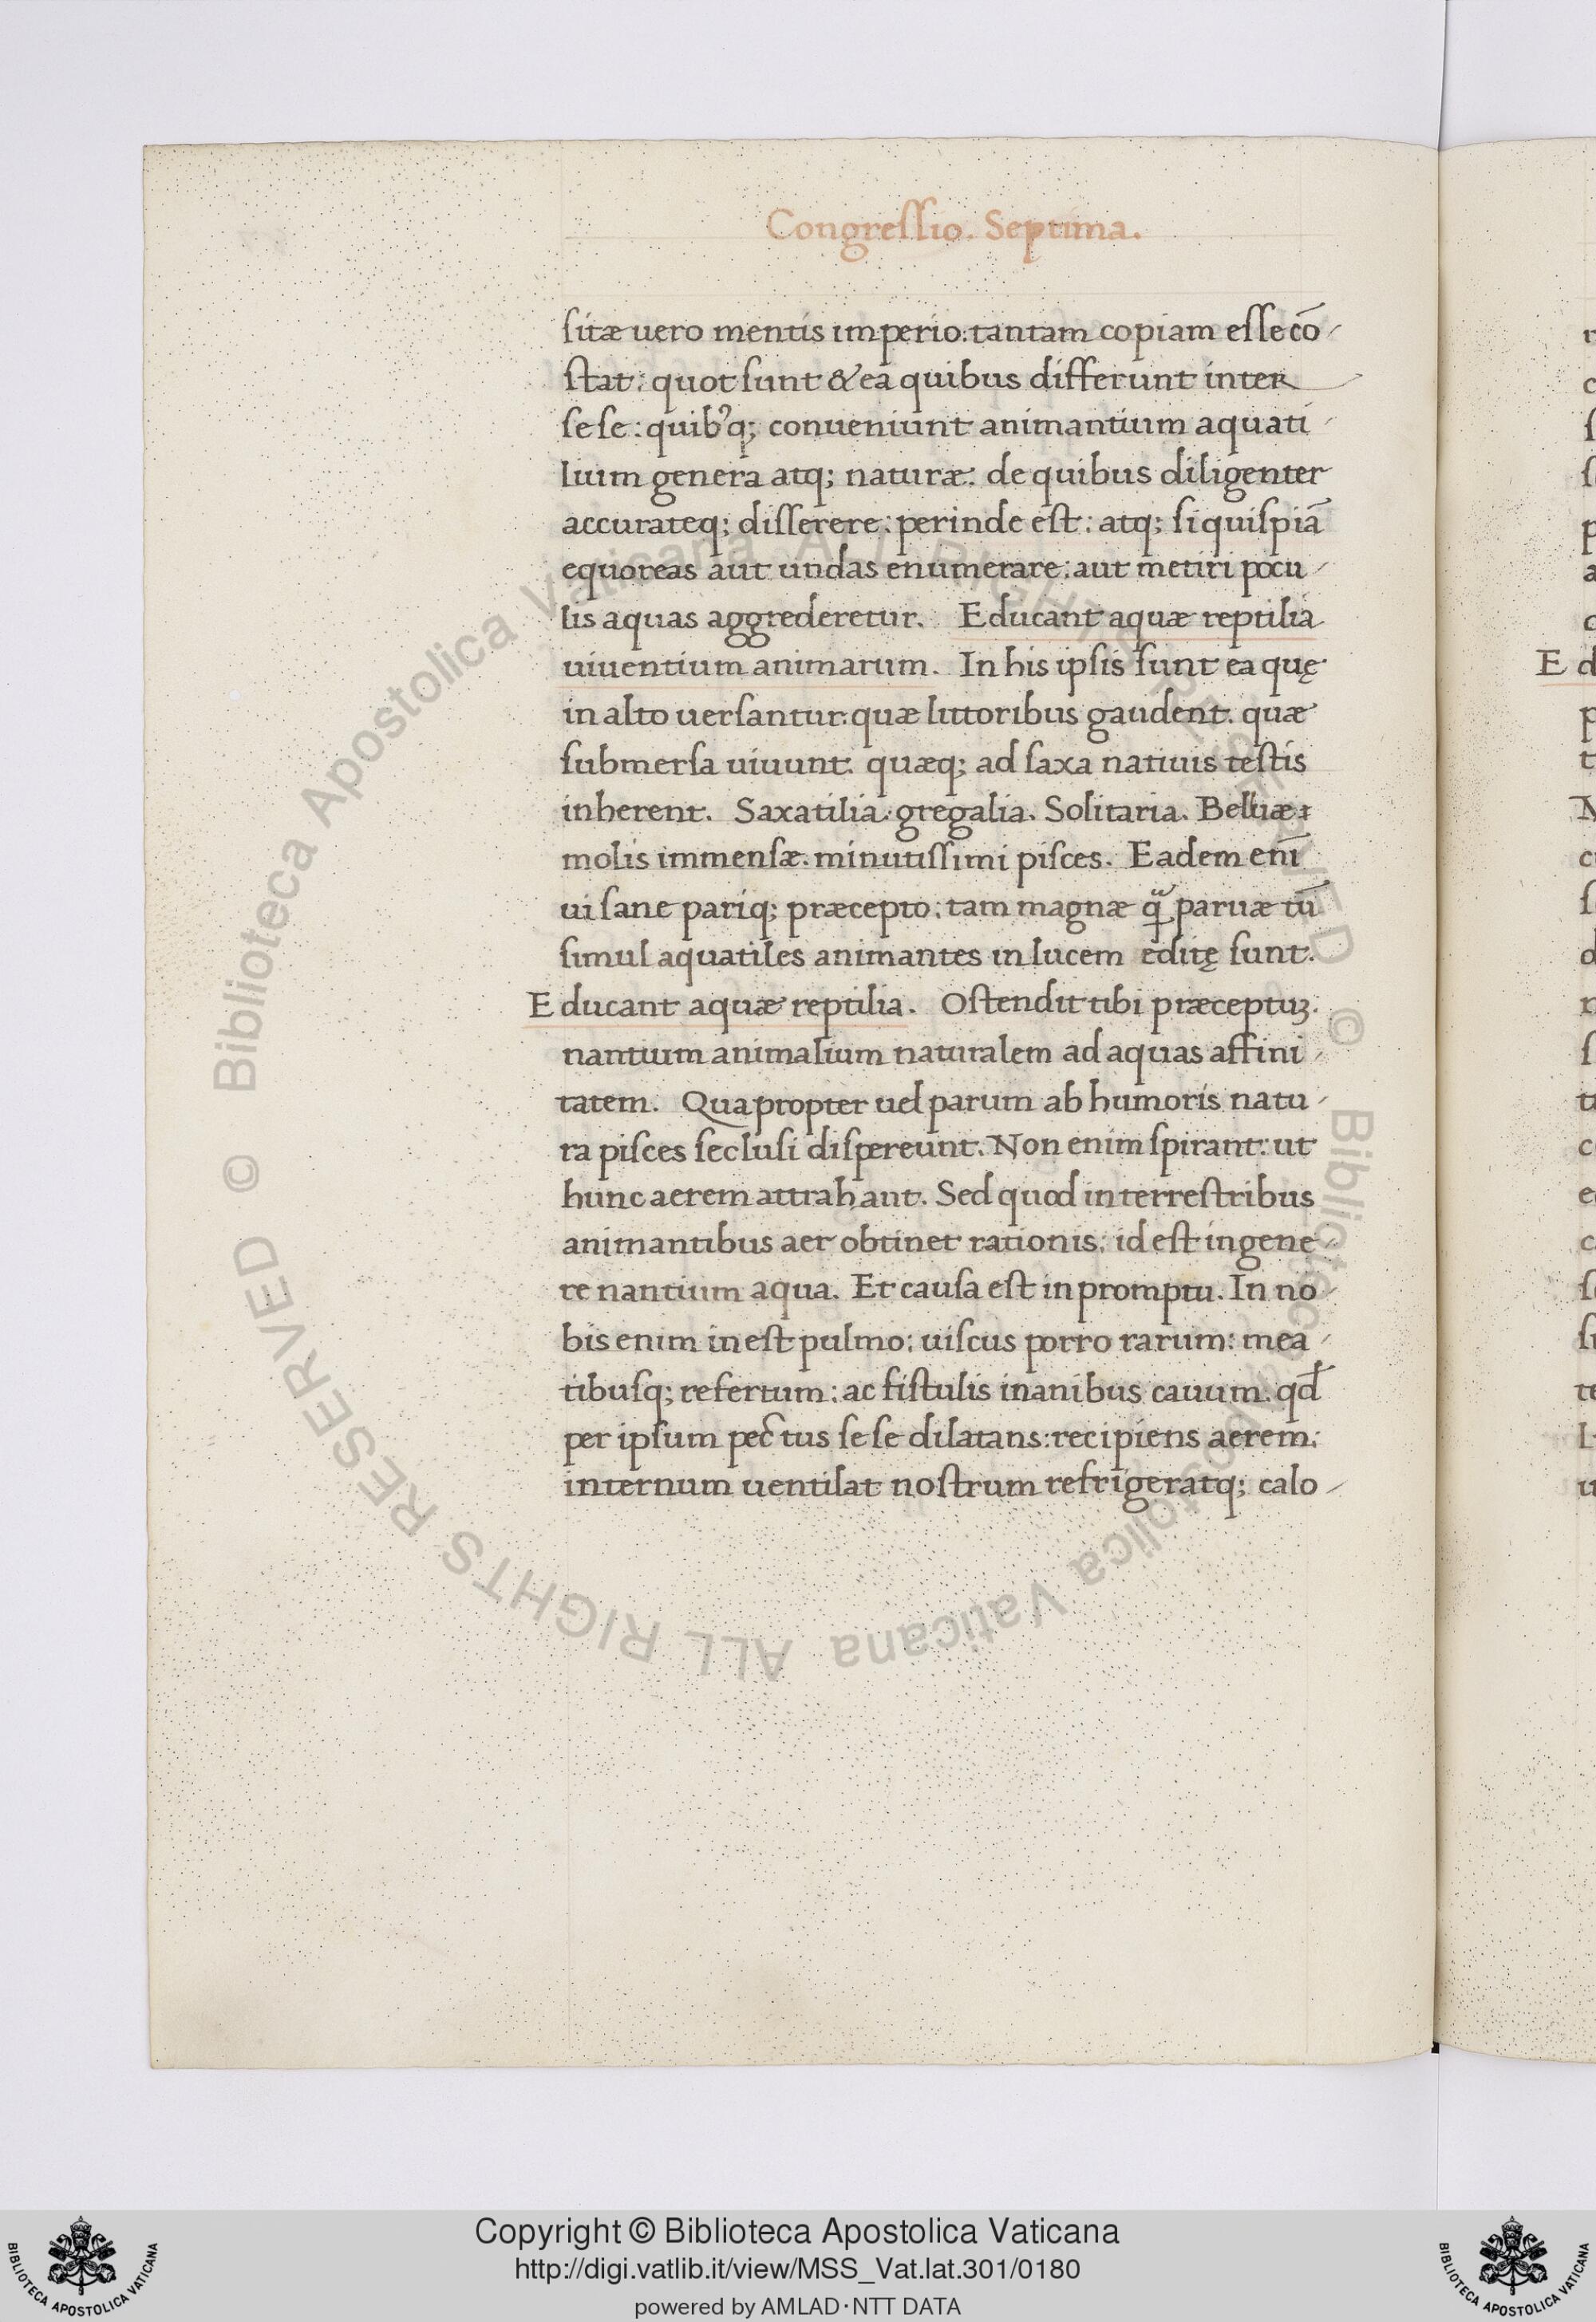 Congreſſio. Septima.
ſitæ uero mentis imperio: tantam copiam eſſe cō-
ſtat: quot ſunt & ea quibus differunt inter
ſeſe: quib'q; conueniunt animantium aquati-
lium genera atq; naturæ: de quibus diligenter
accurateq; diſſerere: perinde eſt: atq; ſi quiſpiā
equoreas aut undas enumerare: aut metiri pocu-
lis aquas aggrederetur. Educant aquæ reptilia
uiuentium animarum. In his ipſis ſunt ea quę
in alto uerſantur: quæ littoribus gaudent. quæ
ſubmerſa uiuunt. quæq; ad ſaxa natiuis teſtis
inherent. Saxatilia. gregalia. Solitaria. Belluæ:
molis immenſæ. minutiſſimi piſces. Eadem enī
ui ſane pariq; præcepto: tam magnæ q̃ paruæ tū
ſimul aquatiles animantes in lucem editę ſunt.
Educant aquæ reptilia. Oſtendit tibi præceptuꝫ.
nantium animalium naturalem ad aquas affini-
tatem. Quapropter uel parum ab humoris natu-
ra piſces ſecluſi diſpereunt. Non enim ſpirant: ut
hunc aerem attrahant. Sed quod in terreſtribus
animantibus aer obtinet rationis: id eſt in gene-
re nantium aqua. Et cauſa eſt in promptu. In no-
bis enim ineſt pulmo: uiſcus porro rarum: mea-
tibuſq; refertum: ac fiſtulis inanibus cauum. qd̄
per ipſum pectus ſeſe dilatans: recipiens aerem:
internum uentilat noſtrum refrigeratq; calo-
E d
© Biblioteca Apostolica Vaticana ALL RIGHTS RESERVED © Biblioteca Apostolica Vaticana ALL RIGHTS RESERVED
BIBLIOTECA APOSTOLICA VATICANA
Copyright © Biblioteca Apostolica Vaticana
http://digi.vatlib.it/view/MSS_Vat.lat.301/0180
powered by AMLAD·NTT DATA
BIBLIOTECA APOSTOLICA VATICANA